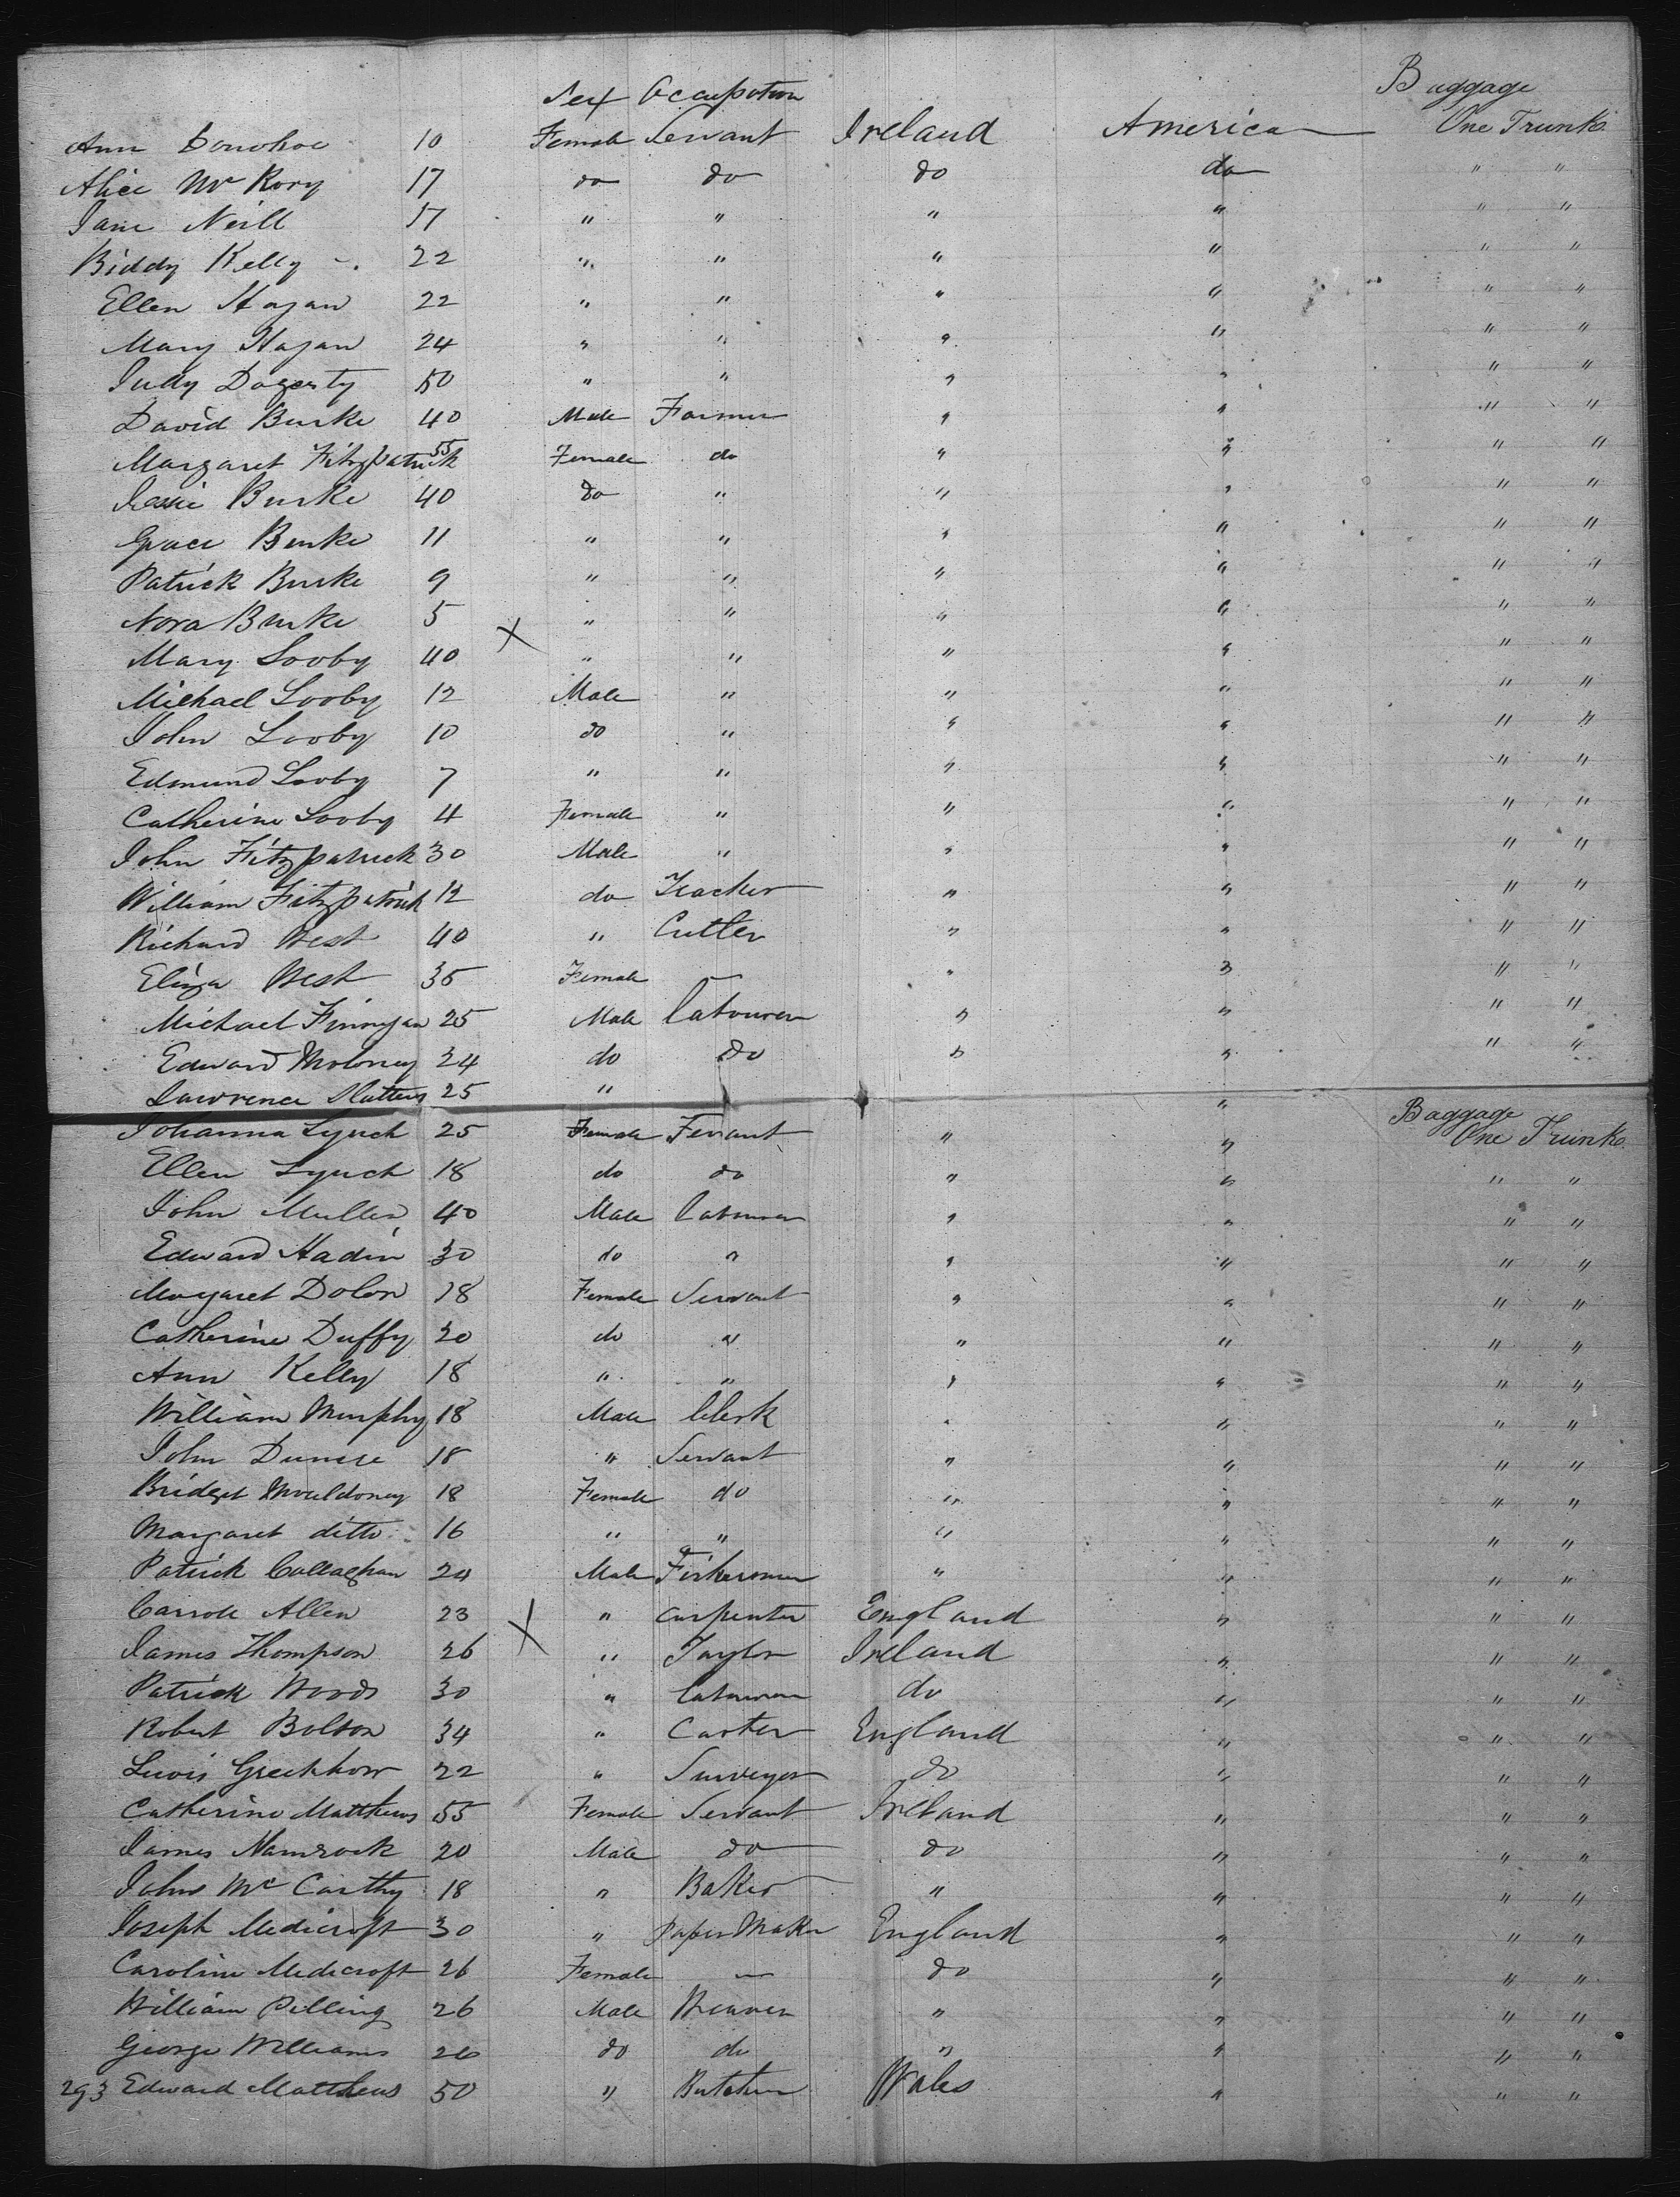 Sex Occupation Baggage
Ann Donohoe 10 Female Servant Ireland America One Trunk
Alice Mc Rory 17 do do do do " "
Jane Neill 17 " " " " " "
Biddy Kelly 22 " " " " " "
Ellen Hagan 22 " " " " " "
Mary Hagan 24 " " " " " "
Judy Dogerty 50 " " " " " "
David Burke 40 Male Farmer " " " "
Margaret Fitzpatrick 55 Female do " " " "
Jessie Burke 40 do " " " " "
Grace Burke 11 " " " " " "
Patrick Burke 9 " " " " " "
Nora Burke 5 " " " " " "
Mary Looby 40 X " " " " " "
Michael Looby 12 Male " " " " "
John Looby 10 do " " " " "
Edmund Looby 7 " " " " " "
Catherine Looby 4 Female " " " " "
John Fitzpatrick 30 Male " " " " "
William Fitzpatrick 12 do Teacher " " " "
Richard West 40 " Cutler " " " "
Eliza West 35 Female - " " " "
Michael Finnegan 25 Male Labourer " " " "
Edward Moloney 24 do do " " " "
Lawrence Slattery 25 " "
Baggage
Johanna Lynch 25 Female Servant " " One Trunk
Ellen Lynch 18 do do " " " "
John Mullen 40 Male Labourer " " " "
Edward Hadin 30 do " " " " "
Margaret Dolon 18 Female Servant " " " "
Catherine Duffy 20 do " " " " "
Ann Kelly 18 " " " " " "
William Murphy 18 Male Clerk " " " "
John Dunne 18 " Servant " " " "
Bridget Mouldoney 18 Female do " " " "
Margaret ditto 16 " " " " " "
Patrick Callaghan 24 Male Fisherman " " " "
Carroll Allen 23 X " Carpenter England " " "
James Thompson 26 " Taylor Ireland " " "
Patrick Woods 30 " Labourer do " " "
Robert Bolton 34 " Carter England " " "
Lewis 22 " Surveyor do " " "
Catherine Matthews 55 Female Servant Ireland " " "
James 20 Male do do " " "
John Mc Carthy 18 " Baker " " " "
Joseph Medicroft 30 " Paper Maker England " " "
Caroline Medicroft 26 Female - do " " "
William Pilling 26 Male Weaver " " " "
George Williams 26 do do " " " "
293 Edward Matthews 50 " Butcher Wales " " "